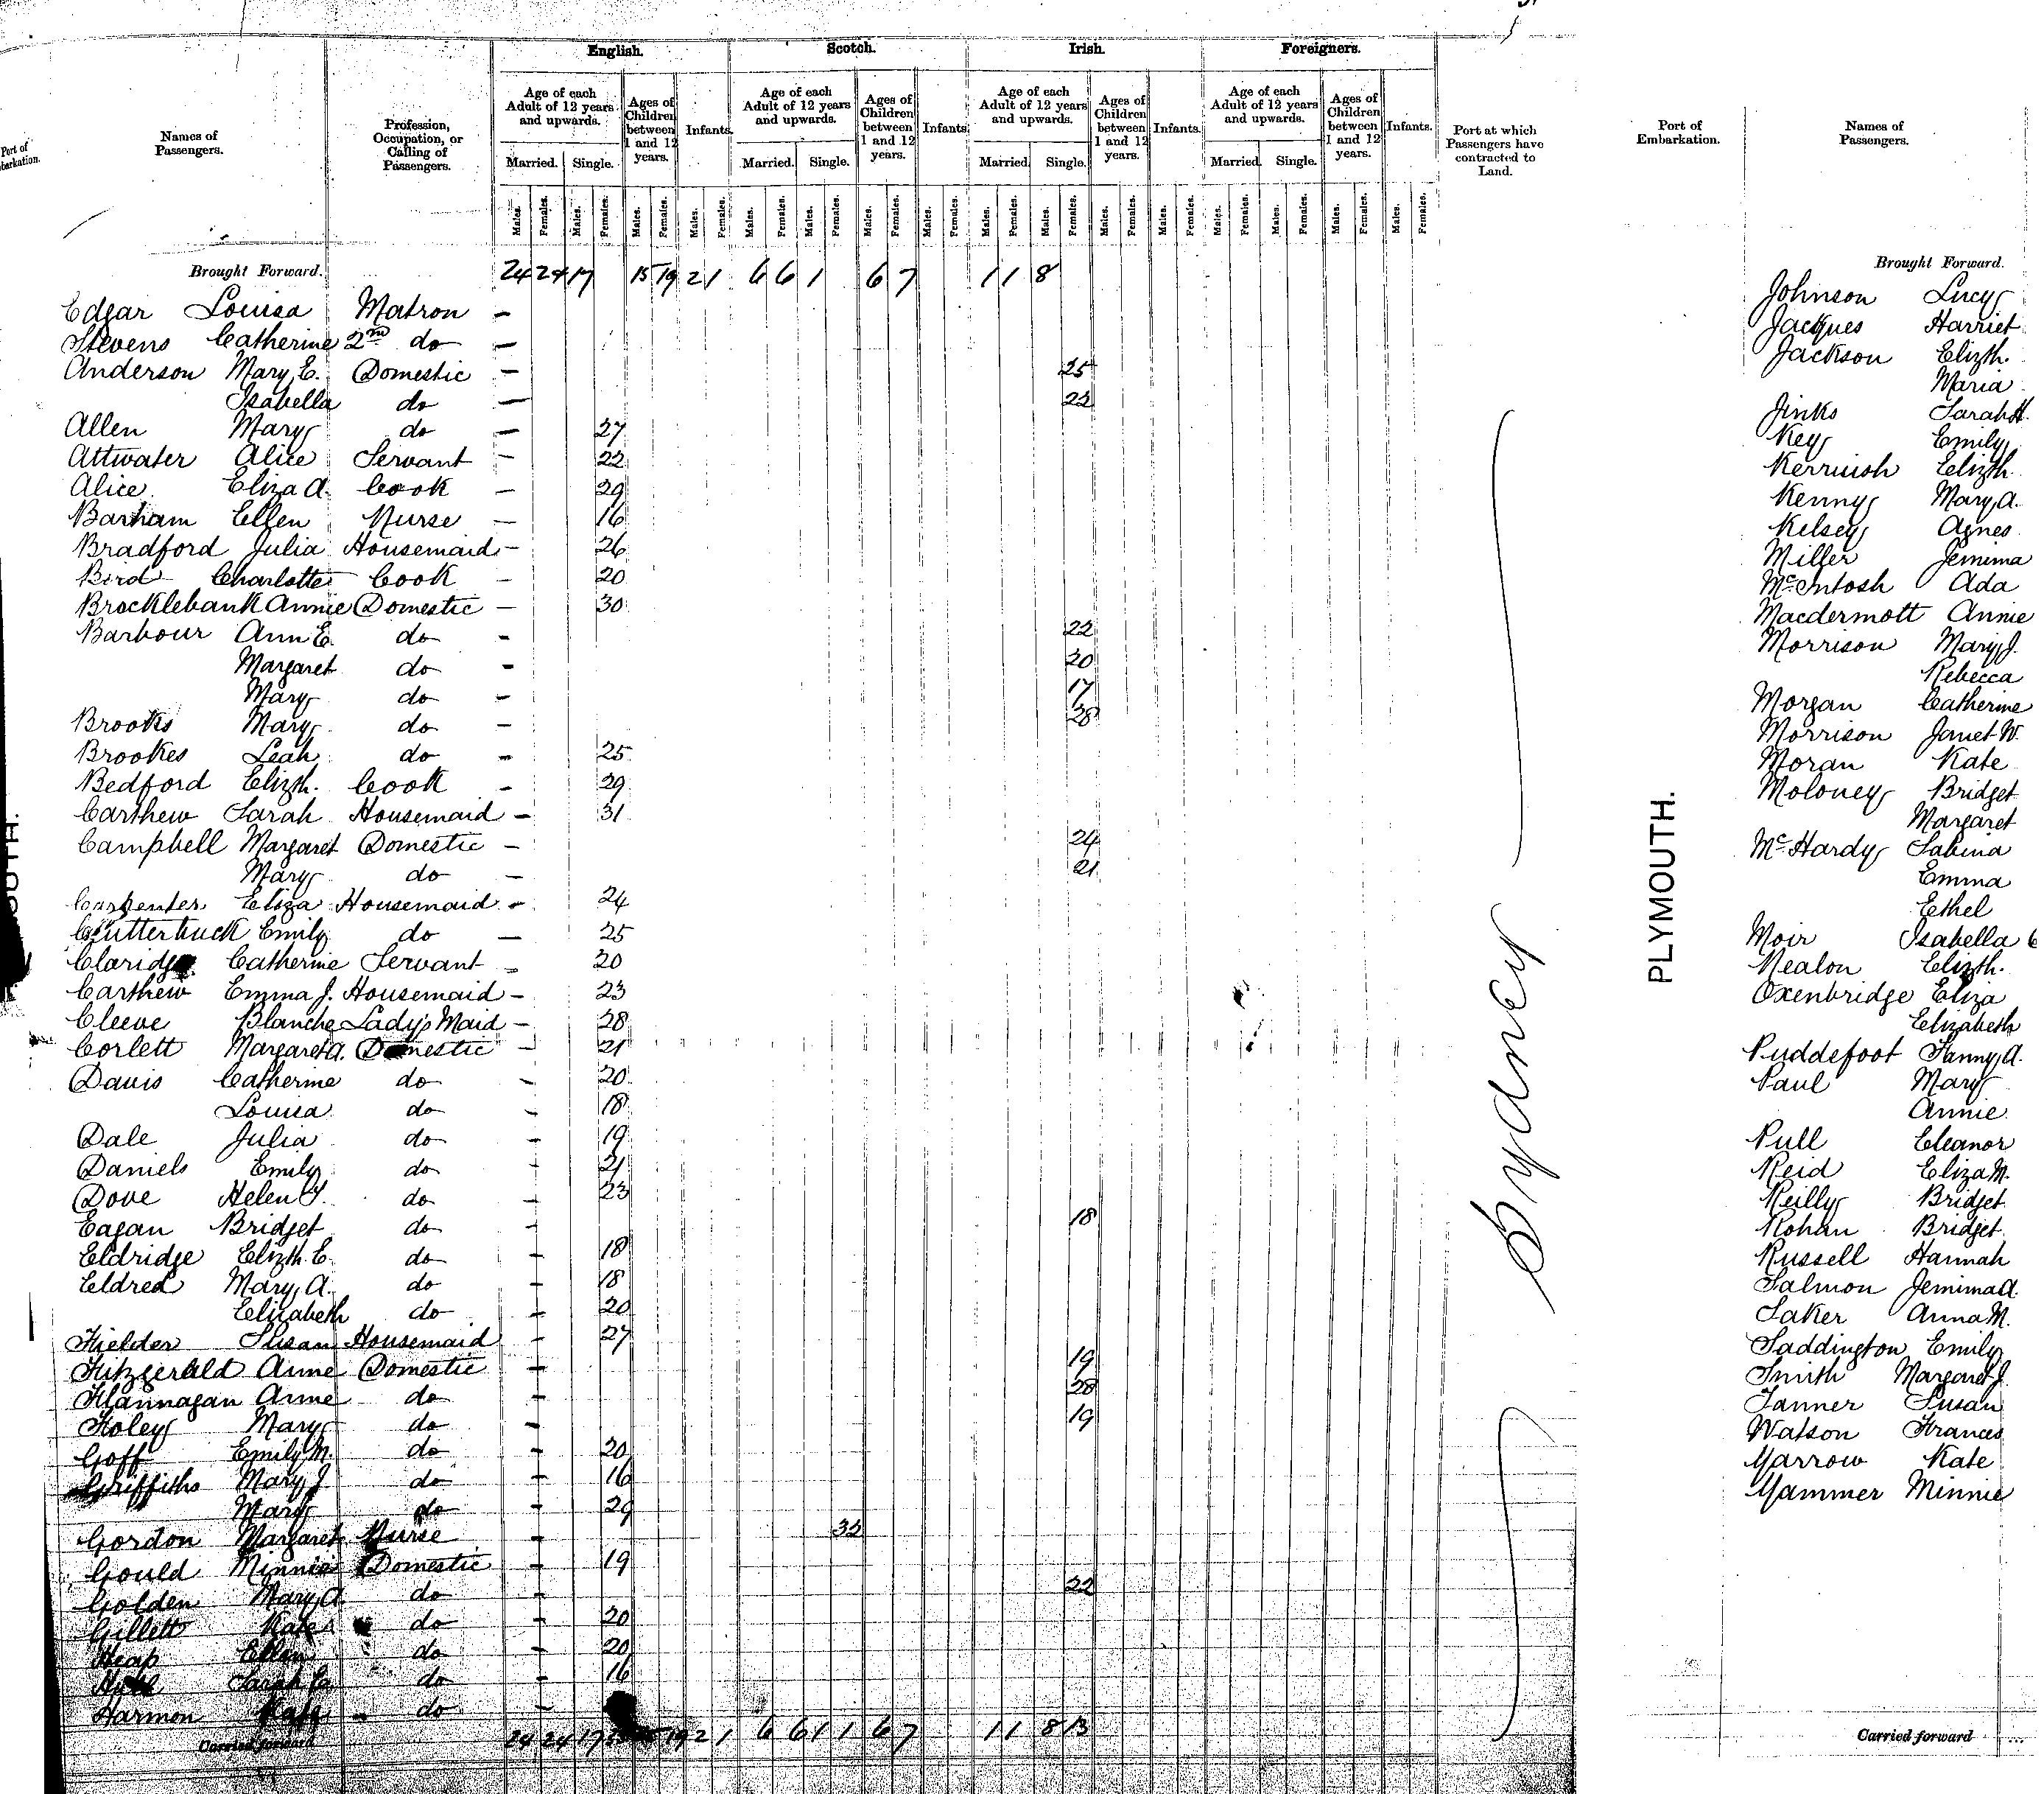 English. Scotch. Irish. Foreigners.
Port of Embarkation.
Names of Passengers.
Profession, Occupation, or Calling of Passengers.
Age of each Adult of 12 years and upwards. Ages of Children between 1 and 12 years. Infants. Age of each Adult of 12 years and upwards. Ages of Children between 1 and 12 years. Infants. Age of each Adult of 12 years and upwards. Ages of Children between 1 and 12 years. Infants. Age of each Adult of 12 years and upwards. Ages of Children between 1 and 12 years. Infants.
Port at which Passengers have contracted to Land.
Married. Single. Married. Single. Married. Single. Married. Single.
Males. Females. Males. Females. Males. Females. Males. Females. Males. Females. Males. Females. Males. Females. Males. Females. Males. Females. Males. Females. Males. Females. Males. Females. Males. Females. Males. Females. Males. Females. Males. Females.
Brought Forward. 24 24 17 15 19 2 1 6 6 1 6 7 1 1 8
Edgar Louisa Matron -
Stevens Catherine 2nd do -
Anderson Mary E. Domestic - 25
Isabella do - 22
Allen Mary do - 27
Attwater Alice Servant - 22
Alice Eliza A. Cook - 29
Barham Ellen Nurse - 16
Bradford Julia Housemaid - 26
Bird Charlotte Cook - 20
Brocklebank Annie Domestic - 30
Barbour Ann E. do - 22
Margaret do - 20
Mary do - 17
Brooks Mary do - 28
Brookes Leah do - 25
Bedford Elizth. Cook - 29
Carthew Sarah Housemaid - 31
Campbell Margaret Domestic - 24
Mary do - 21
Carpenter Eliza Housemaid - 24
Clutterbuck Emily do - 25
Claridge Catherine Servant - 20
Carthew Emma J. Housemaid - 23
Cleeve Blanche Lady's Maid - 28
Corlett Margaret A. Domestic - 21
Davis Catherine do - 20
Louisa do - 18
Dale Julia do - 19
Daniels Emily do - 21
Dove Helen Y. do - 23
Eagan Bridget do - 18
Eldridge Elizth. E. do - 18
Eldred Mary A. do - 18
Elizabeth do - 20
Fielder Susan Housemaid - 27
Fitzgerald Anne Domestic - 19
Flannagan Anne do - 28
Foley Mary do - 19
Goff Emily M. do - 20
Griffiths Mary J. do - 16
Mary do - 29
Gordon Margaret Nurse - 32
Gould Minnie Domestic - 19
Golden Mary A. do - 22
Gillett Kate do - 20
Heap Ellen do - 20
Sarah do - 16
Harmon Kate do -
Carried forward 24 24 17 19 2 1 6 6 1 1 6 7 1 1 8 13
Sydney
Port of Embarkation.
Names of Passengers.
PLYMOUTH.
Brought Forward.
Johnson Lucy
Jacques Harriet
Jackson Elizth.
Maria
Jinks Sarah H.
Key Emily
Kerruish Elizth.
Kenny Mary A.
Kelsey Agnes
Miller Jemima
McIntosh Ada
Macdermott Annie
Morrison Mary J.
Rebecca
Morgan Catherine
Morrison Janet W.
Moran Kate
Moloney Bridget
Margaret
McHardy Sabina
Emma
Ethel
Moir Isabella
Nealon Elizth.
Oxenbridge Eliza
Elizabeth
Puddefoot Fanny A.
Paul Mary
Annie
Pull Eleanor
Reid Eliza M.
Reilly Bridget
Rohan Bridget
Russell Hannah
Salmon Jemima A.
Saker Anna M.
Saddington Emily
Smith Margaret J.
Tanner Susan
Watson Frances
Yarrow Kate
Yammer Minnie
Carried forward